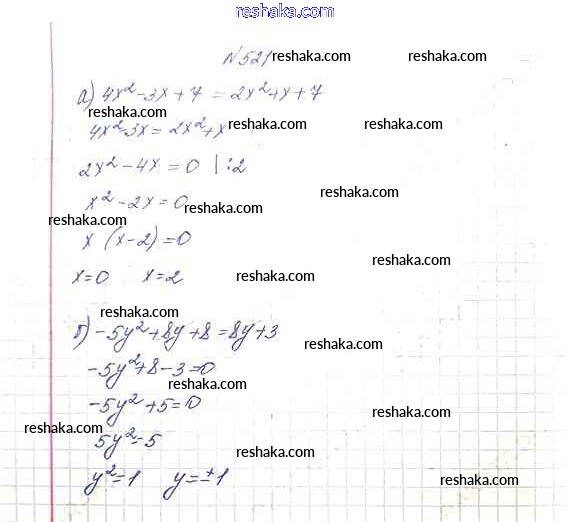 reshaka.com
№521 reshaka.com reshaka.com
а) 4x² - 3x + 7 = 2x² + x + 7
reshaka.com
4x² - 3x = 2x² + x reshaka.com reshaka.com
2x² - 4x = 0 | :2
reshaka.com
x² - 2x = 0 reshaka.com
reshaka.com
x (x - 2) = 0
reshaka.com
x = 0 x = 2 reshaka.com
reshaka.com
б) -5y² + 8y + 8 = 8y + 3
reshaka.com
-5y² + 8 - 3 = 0
reshaka.com
-5y² + 5 = 0
reshaka.com
reshaka.com
5y² = 5
reshaka.com
y² = 1 y = ±1
reshaka.com